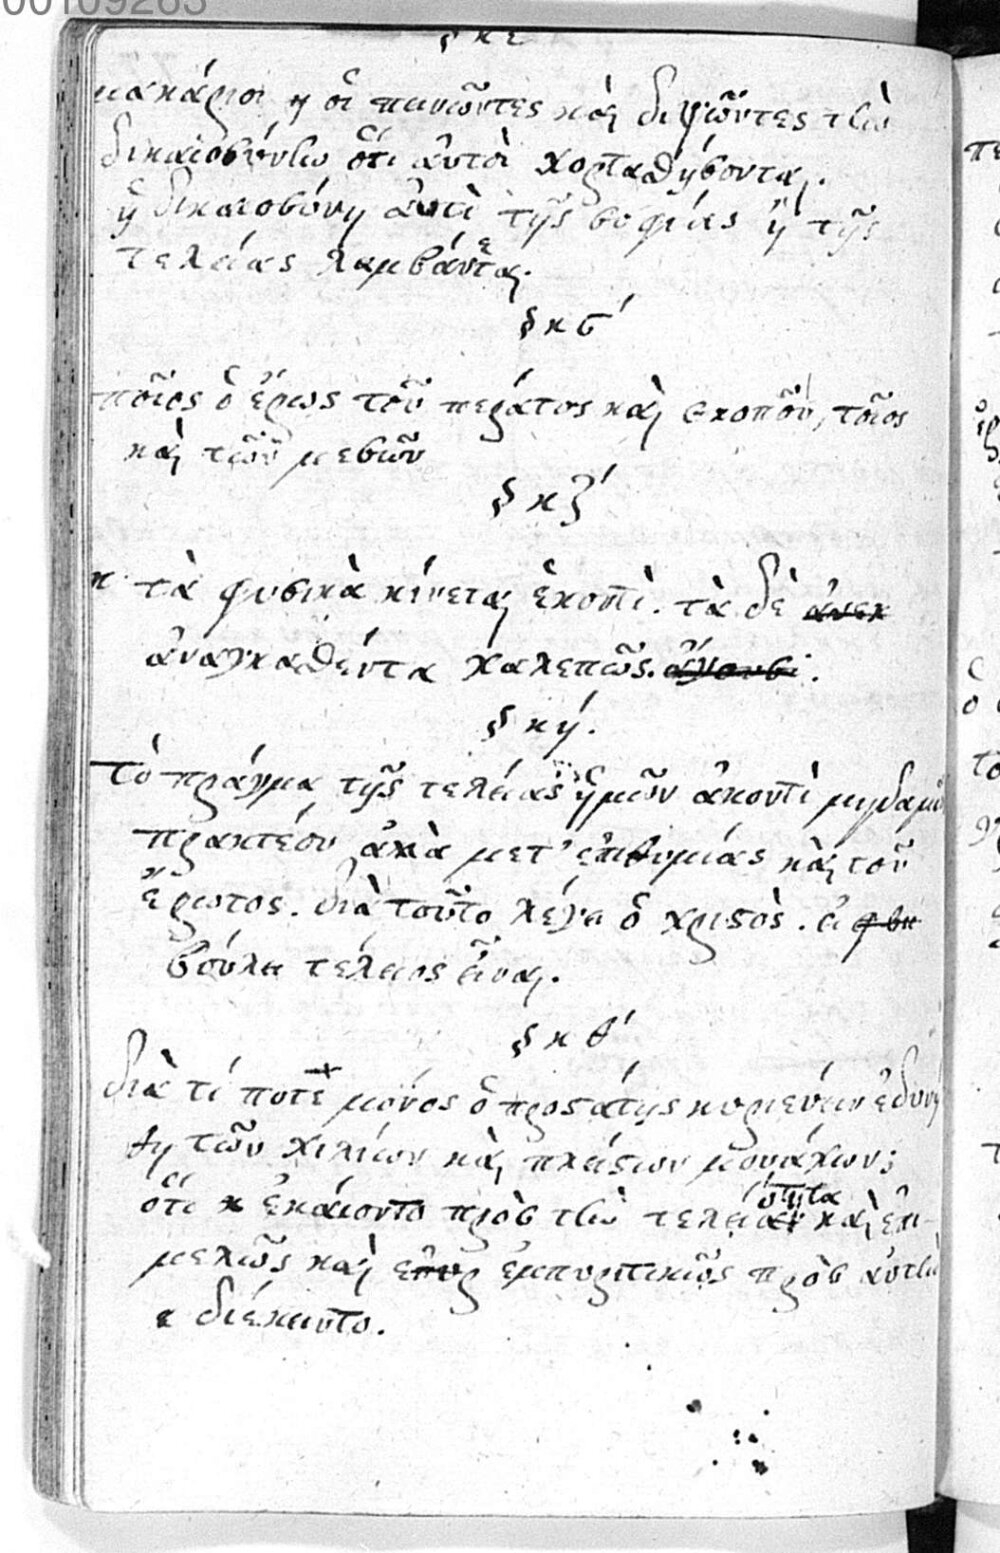 00109263
§ κε
μακάριοι η οἱ πεινῶντες καὶ διψῶντες τὴν
δικαιοσύνην ὅτι ἀυτοὶ χορταθήσονται.
ἡ δικαιοσύνη ἀντὶ τῆς σοφίας ἢ τῆς
τελείας λαμβάνεται.
§ κϛ´
ποῖος ὁ ἔρως τοῦ πέρατος καὶ σκοποῦ, τοῖος
καὶ τῶν μεσῶν
§ κζ´
κ τὰ φυσικὰ κίνεται ἑκοντὶ. τὰ δὲ ἀνεκ
ἀναγκαθέντα χαλεπῶς. ἄγουσι.
§ κή.
τὸ πράγμα τῆς τελείας ἡμῶν ἀκοντὶ μηδαμῶ
πρακτέον ἀλλὰ μετ' ἐπιθυμίας καὶ τοῦ
ἔρωτος. διὰ τοῦτο λέγει ὁ χριστὸς. εἰ
βούλει τέλειος εἶναι.
§ κθ´
διὰ τί ποτε μόνος ὁ προστάτης κυριεύειν ἐδυνή
θη τῶν χιλίων καὶ πλείστων μονάχων;
ὅτι ἐκαίοντο πρὸς τὴν τελειότητα καὶ ἐπι-
μελῶς καὶ ἐμπυριτικῶς πρὸς ἀυτὴν
διέκειντο.